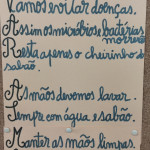 Vamos evitar doenças.
Assim os micróbios e bactérias
morrerão
Resta apenas o cheirinho do
sabão.
As mãos devemos lavar.
Sempre com água e sabão.
Manter as mãos limpas.